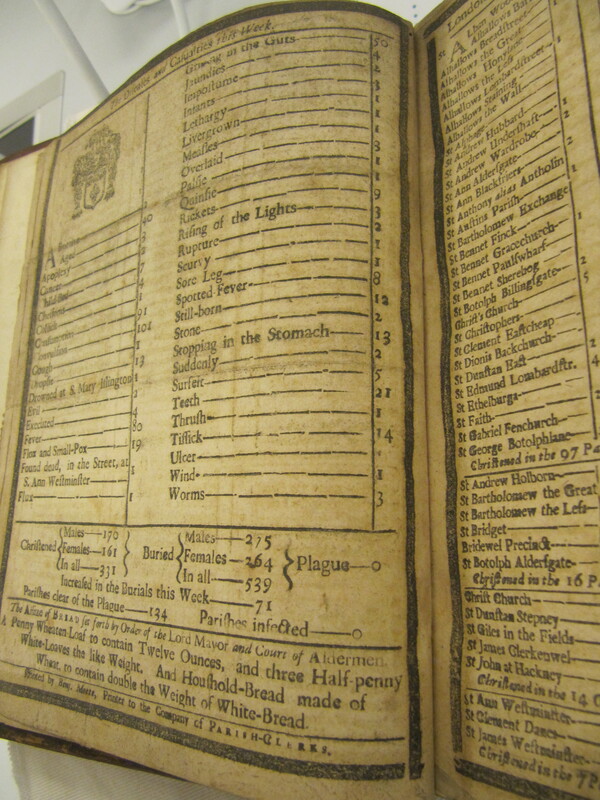 The Diseases and Casualties this Week.
Aged 40
Apoplexy
Cancer
Childbed
Chrisoms
Colick 1
Consumption 91
Convulsion 101
Cough 1
Dropsie 13
Drowned at S. Mary Islington 1
Evil 2
Executed 4
Fever 80
Flux and Small-Pox 19
Found dead, in the Street, at
S. Ann Westminster 1
Flux 1
Griping in the Guts 50
Jaundies 4
Impostume
Infants
Lethargy
Livergrown
Measles
Overlaid
Palsie
Quinsie
Rickets 9
Rising of the Lights 3
Rupture 2
Scurvy 1
Sore Leg 1
Spotted Fever 8
Still-born 12
Stone 1
Stopping in the Stomach 13
Suddenly 2
Surfeit 5
Teeth 21
Thrush 1
Tissick 14
Ulcer 1
Wind 1
Worms 3
Christened { Males 170 Females 161 In all 331 } Buried { Males 275 Females 264 In all 539 } Plague 0
Increased in the Burials this Week 71
Parishes clear of the Plague 134 Parishes infected 0
The Assize of BREAD set forth by Order of the Lord Mayor and Court of Aldermen.
A Penny Wheaten Loaf to contain Twelve Ounces, and three Half-penny
White-Loaves the like Weight. And Houshold-Bread made of
Wheat, to contain double the Weight of White-Bread.
Printed by Benj. Motte, Printer to the Company of PARISH-CLERKS.
London
St Alban Wood
Alhallows Bar
Alhallows Breadstreet
Alhallows the Great
Alhallows Hony
Alhallows the Less
Alhallows Lombardstreet
Alhallows Staining
Alhallows the Wall
St Andrew Hubbard
St Andrew Undershaft
St Andrew Wardrobe
St Ann Aldersgate
St Ann Blackfriers
St Anthony alias Antholin
St Austins Parish
St Bartholomew Exchange
St Bennet Finck
St Bennet Gracechurch
St Bennet Paulswharf
St Bennet Sherehog
St Botolph Billingsgate
Christ's Church
St Christophers
St Clement Eastcheap
St Dionis Backchurch
St Dunstan East
St Edmund Lombardstr.
St Ethelburga
St Faith
St Gabriel Fenchurch
St George Botolphlane
Christened in the 97 Pa
St Andrew Holborn
St Bartholomew the Great
St Bartholomew the Less
St Bridget
Bridewel Precinct
St Botolph Aldersgate
Christened in the 16 P
Christ Church
St Dunstan Stepney
St Giles in the Fields
St James Clerkenwel
St John at Hackney
Christened in the 14 O
St Ann Westminster
St Clement Danes
St James Westminster
Christened in the 7 P